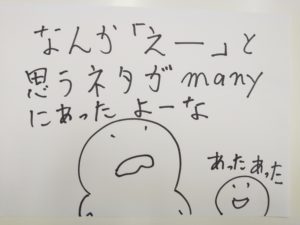 なんか「えー」と
思うネタがmany
にあったよーな
あったあった